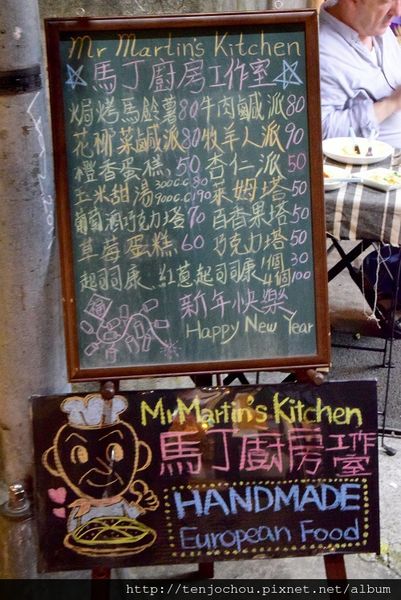 Mr Martin's Kitchen
馬丁廚房工作室
焗烤馬鈴薯80牛肉鹹派80
花椰菜鹹派80牧羊人派90
橙香蛋糕 50 杏仁派 50
玉米甜湯300cc80 900cc190萊姆塔50
葡萄酒巧克力塔70 百香果塔50
草莓蛋糕 60 巧克力塔50
起司司康、紅蔥起司司康1個30 4個100
新年快樂
Happy New Year
Mr Martin's Kitchen
馬丁廚房工作室
HANDMADE
European Food
http://tenjochou.pixnet.net/album